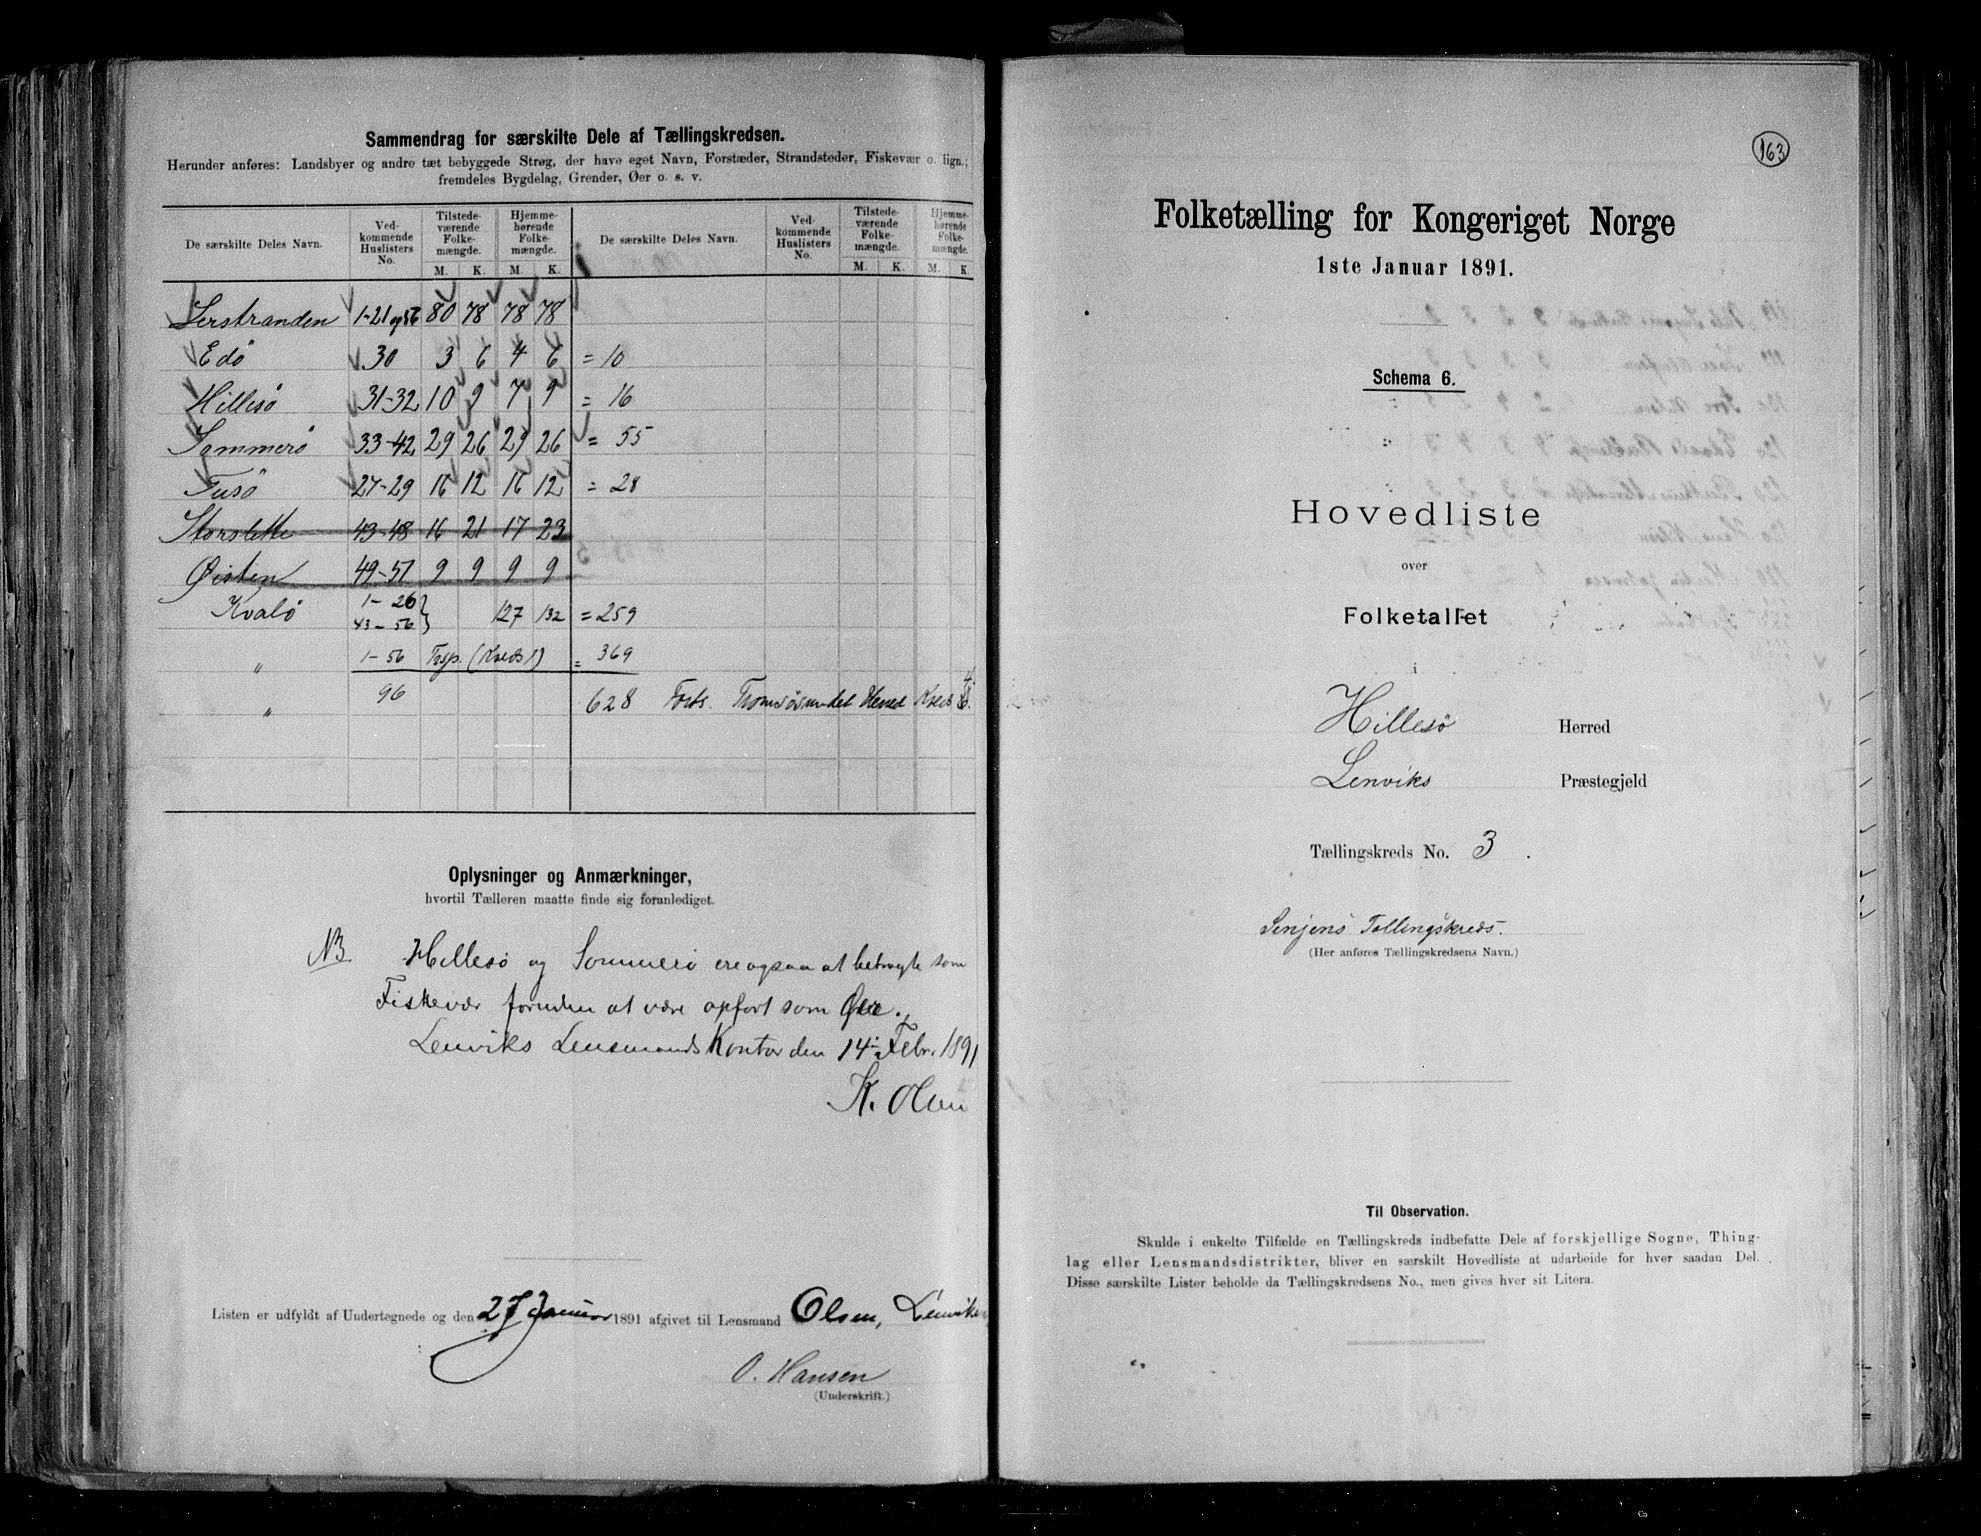 Sammendrag for særskilte Dele af Tællingskredsen.
Herunder anføres: Landsbyer og andre tæt bebyggede Strøg, der have eget Navn, Forstæder, Strandsteder, Fiskevær o. lign.;
fremdeles Bygdelag, Grender, Øer o. s. v.
De særskilte Deles Navn. Ved-kommende Huslisters No. Tilstede-værende Folke-mængde. Hjemme-hørende Folke-mængde. De særskilte Deles Navn. Ved-kommende Huslisters No. Tilstede-værende Folke-mængde. Hjemme-hørende Folke-mængde.
M. K. M. K. M. K. M. K.
1-21 og 56 80 78 78 78
Edø 30 3 6 4 6 = 10
Hillesø 31-32 10 9 7 9 = 16
Sommerø 33-42 29 26 29 26 = 55
Tusø 27-29 16 12 16 12 = 28
Storslette 43-48 16 21 17 23
Øisten 49-51 9 9 9 9
Kvalø 1-26 } 43-56 } 127 132 = 259
" 1-56 Trsp. (Kreds 1) = 369
" 96 628 Forts. Tromsøsundet Herred Kreds
Oplysninger og Anmærkninger,
hvortil Tælleren maatte finde sig foranlediget.
NB. Hillesø og Sommerø ere ogsaa at betragte som
Fiskevær foruden at være opført som Øer.
Lenviks Lensmandskontor den 14. Febr. 1891
K. Olsen
Listen er udfyldt af Undertegnede og den 27 Januar 1891 afgivet til Lensmand Olsen, Lenviken
O. Hansen
(Underskrift.)
163
Folketælling for Kongeriget Norge
1ste Januar 1891.
Schema 6.
Hovedliste
over
Folketallet
i
Hillesø Herred
Lenviks Præstegjeld
Tællingskreds No. 3.
Senjens Tællingskreds.
(Her anføres Tællingskredsens Navn.)
Til Observation.
Skulde i enkelte Tilfælde en Tællingskreds indbefatte Dele af forskjellige Sogne, Thing-
lag eller Lensmandsdistrikter, bliver en særskilt Hovedliste at udarbeide for hver saadan Del.
Disse særskilte Lister beholde da Tællingskredsens No., men gives hver sit Litera.